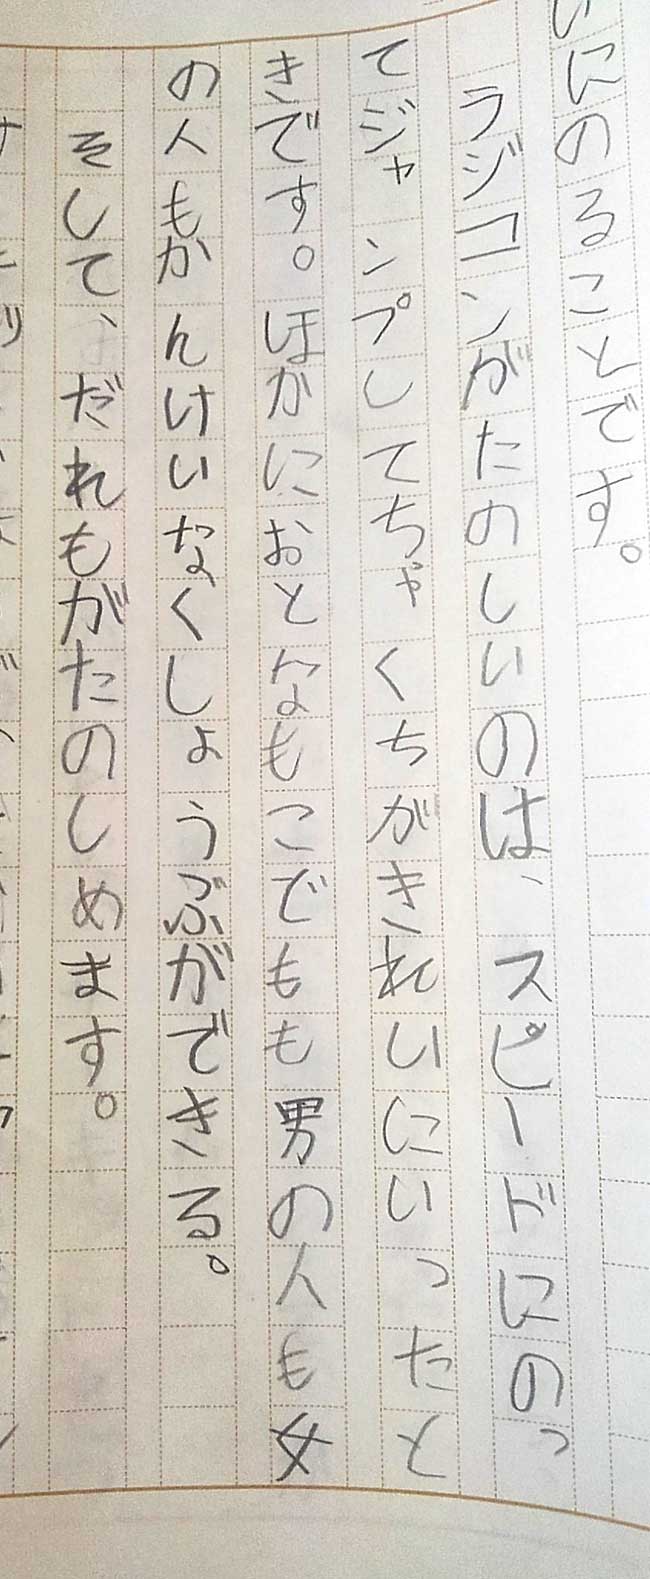 いにのることです。
ラジコンがたのしいのは、スピードにのっ
てジャンプしてちゃくちがきれいにいったと
きです。ほかにおとなもこでもも男の人も女
の人もかんけいなくしょうぶができる。
そして、だれもがたのしめます。